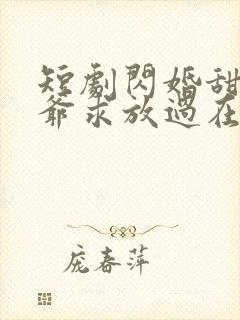 短劇閃婚甜
爺求放過在
庞春萍